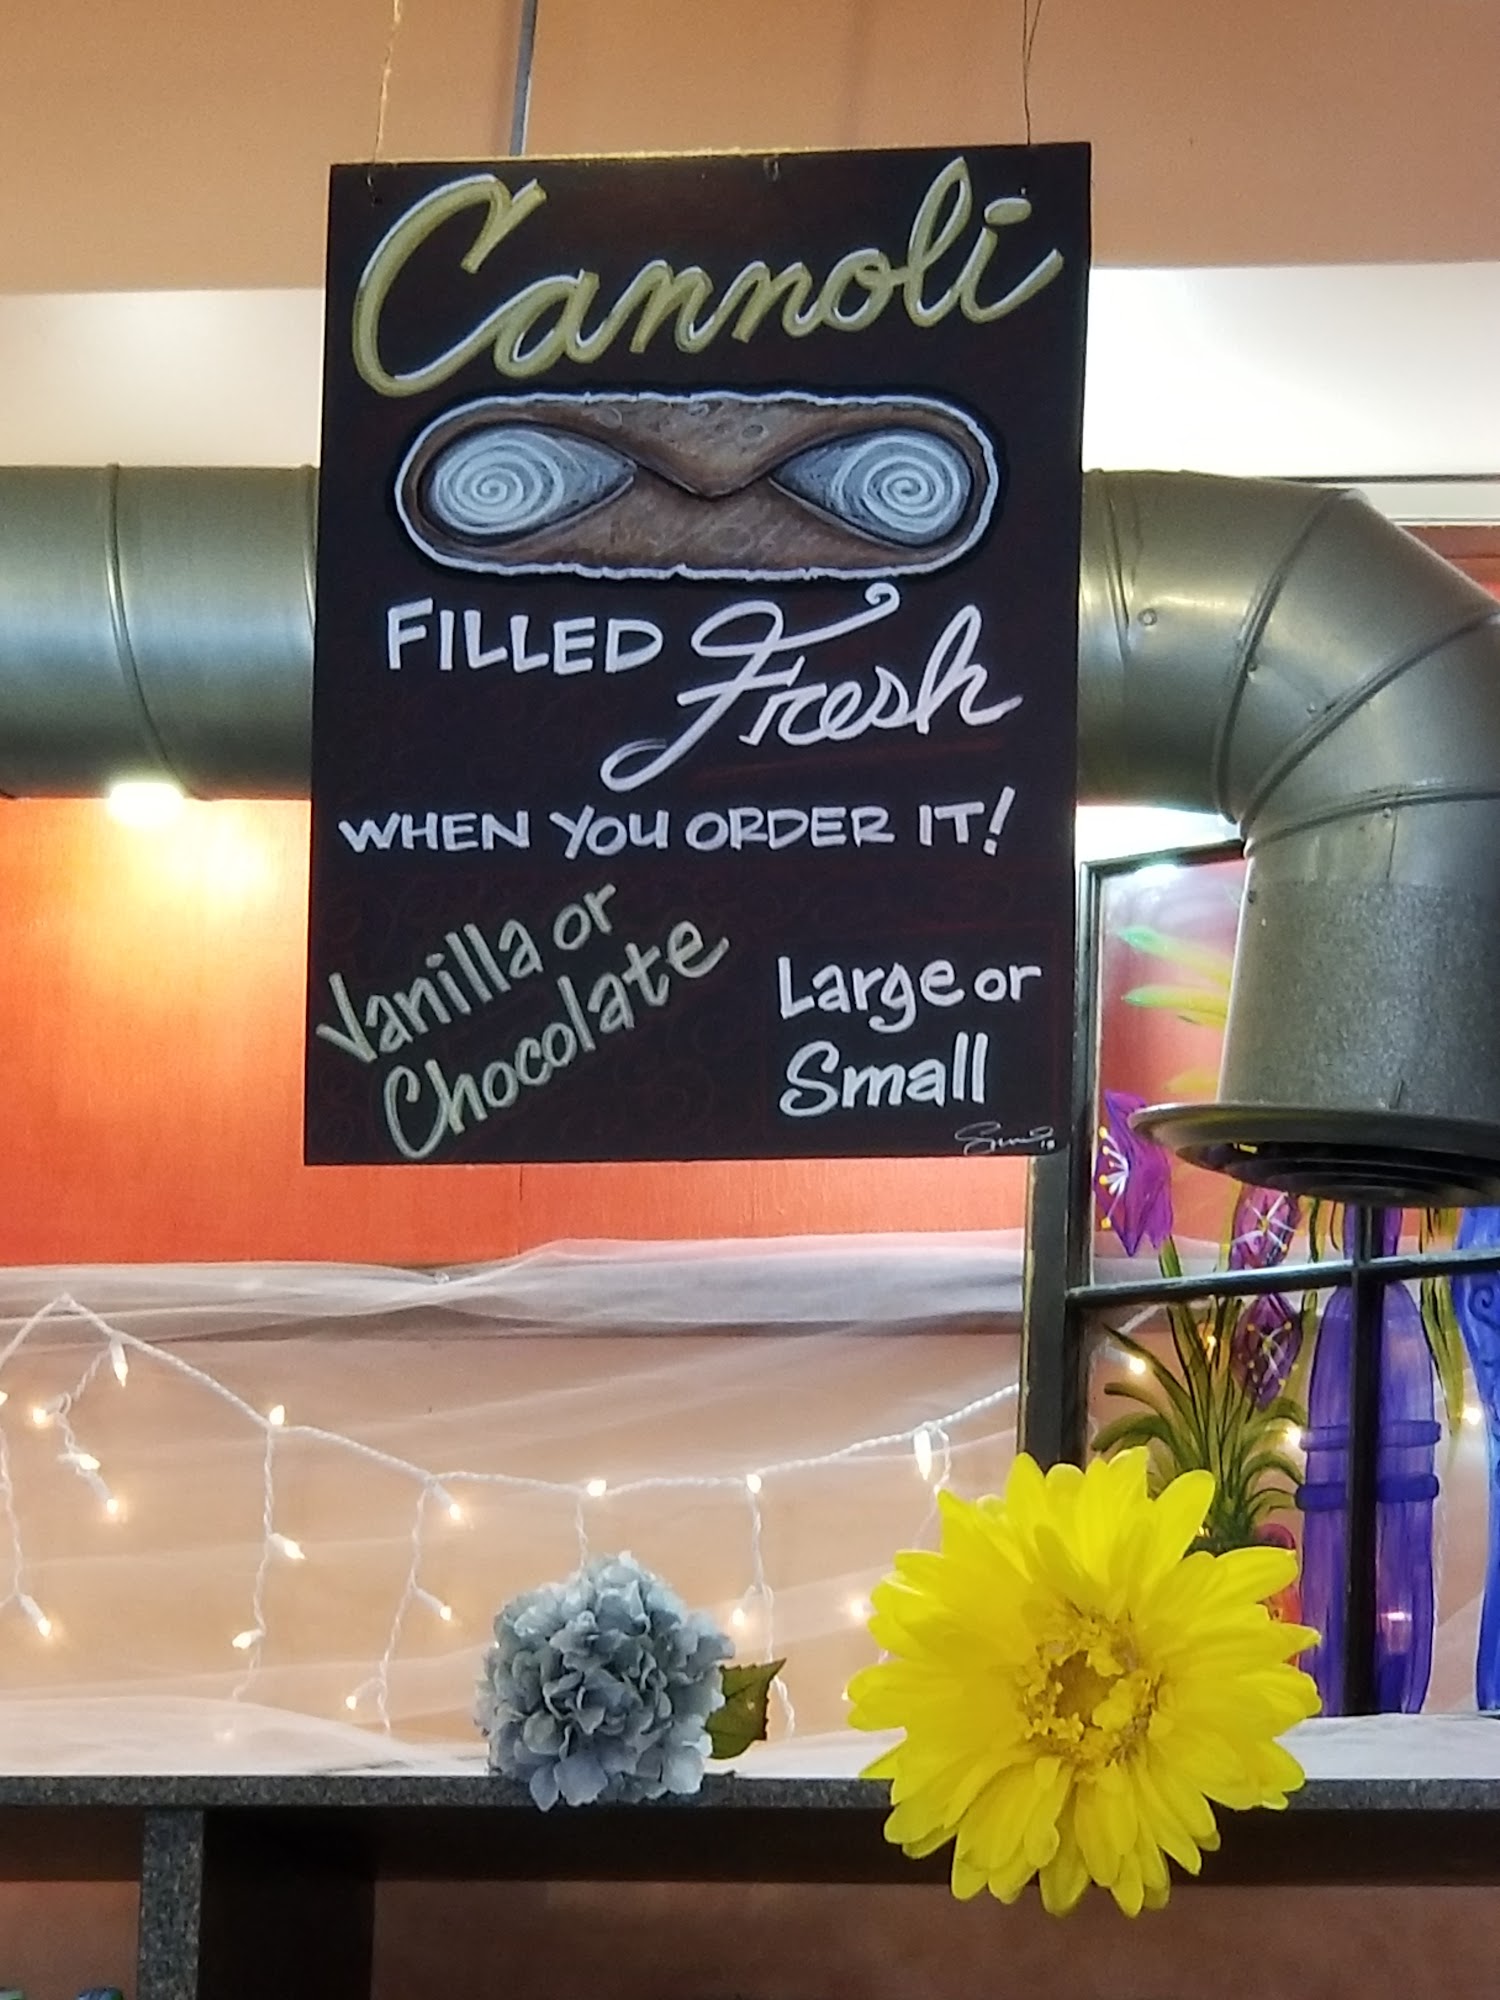 Cannoli
FILLED Fresh
WHEN YOU ORDER IT!
Vanilla or
Chocolate
Large or
Small